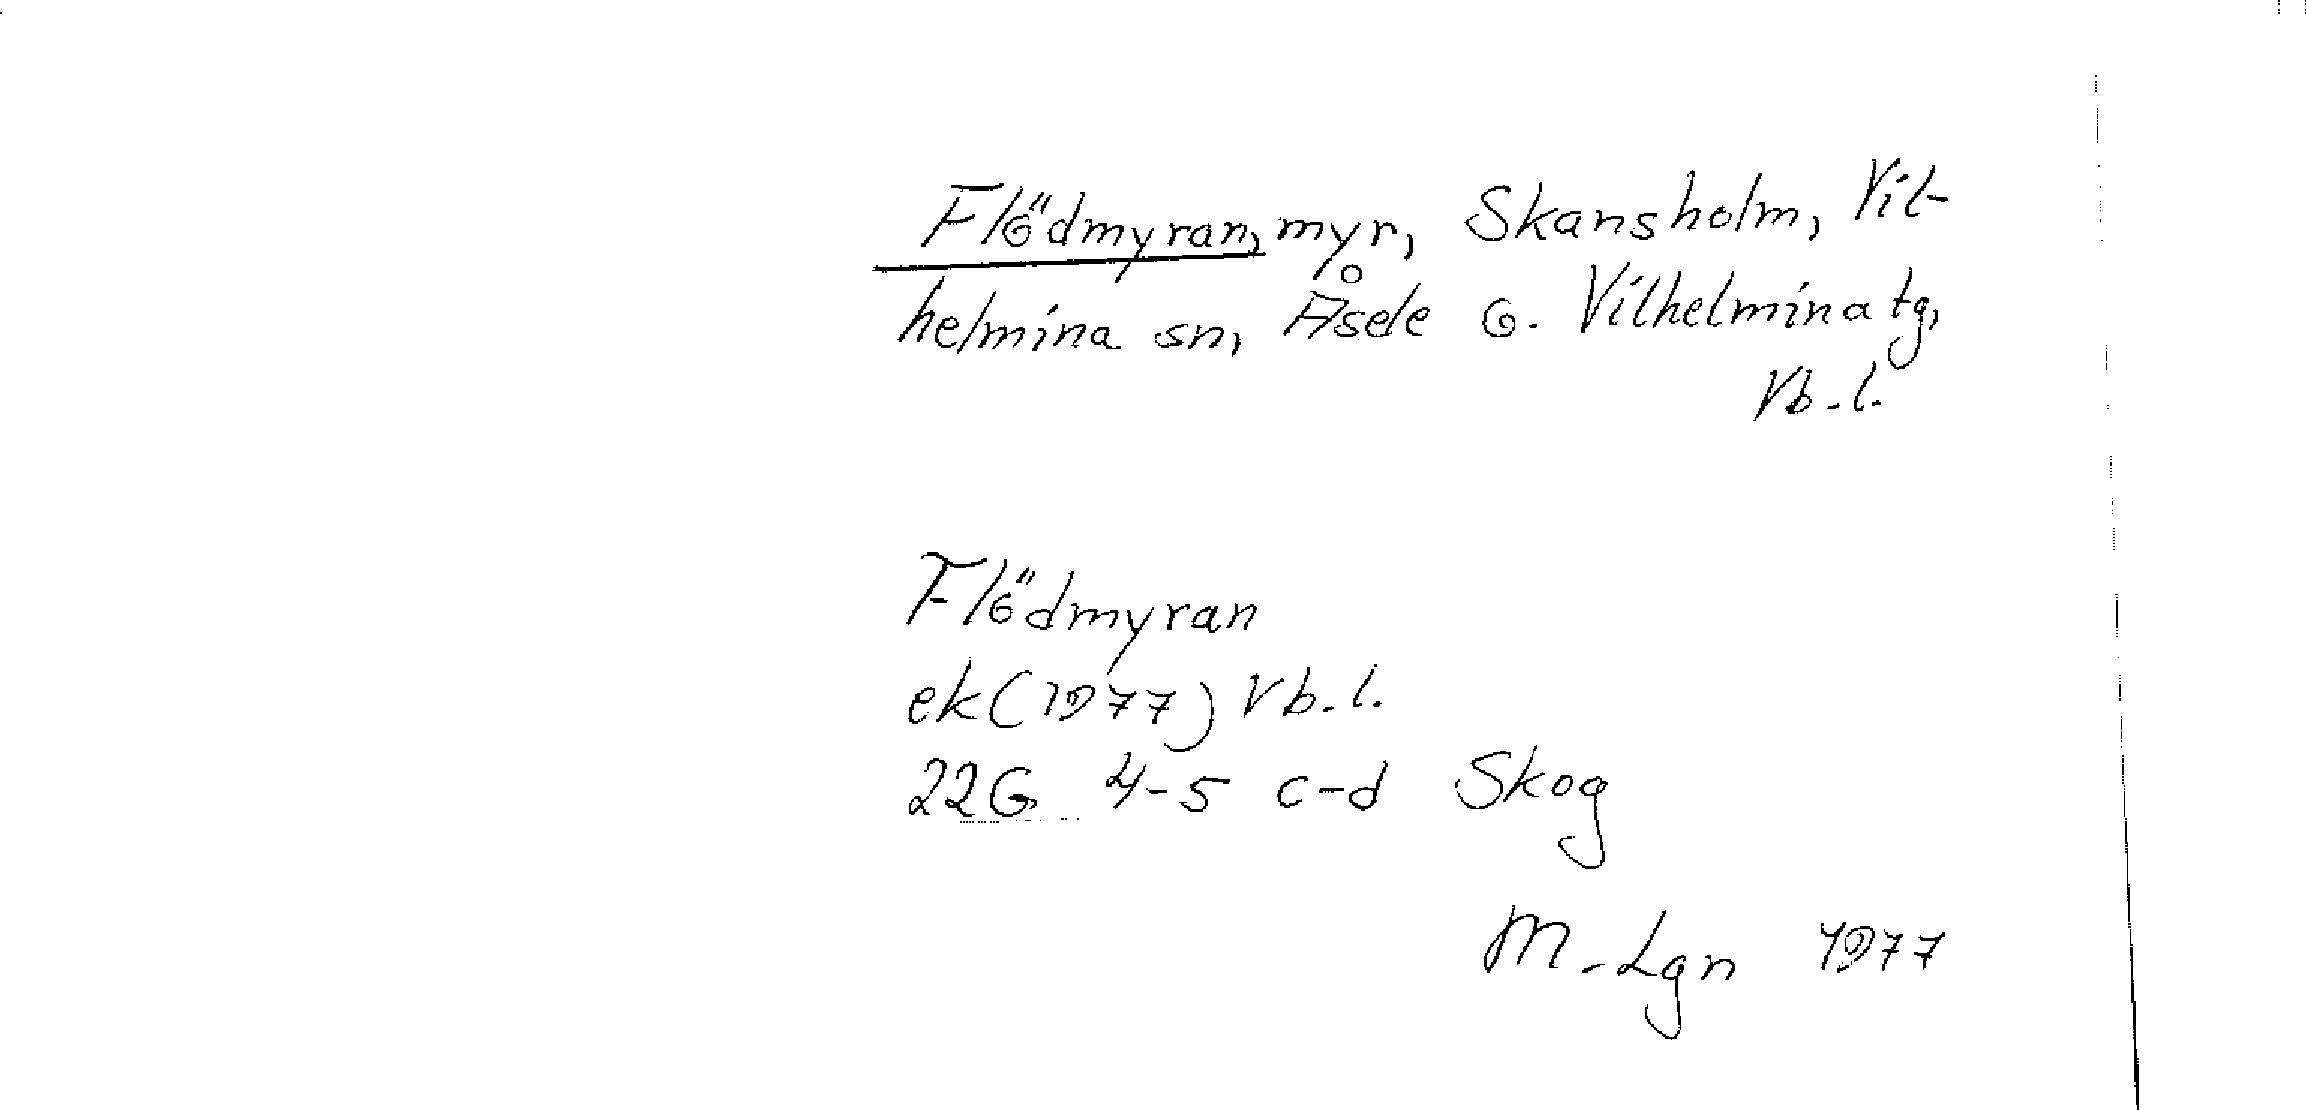 Flödmyran, myr, Skansholm, Vil-
helmina sn, Åsele o. Vilhelmina tg,
Vb. l.
Flödmyran
ek (1977) Vb. l.
22G 4-5 c-d Skog
M-Lgn 1977